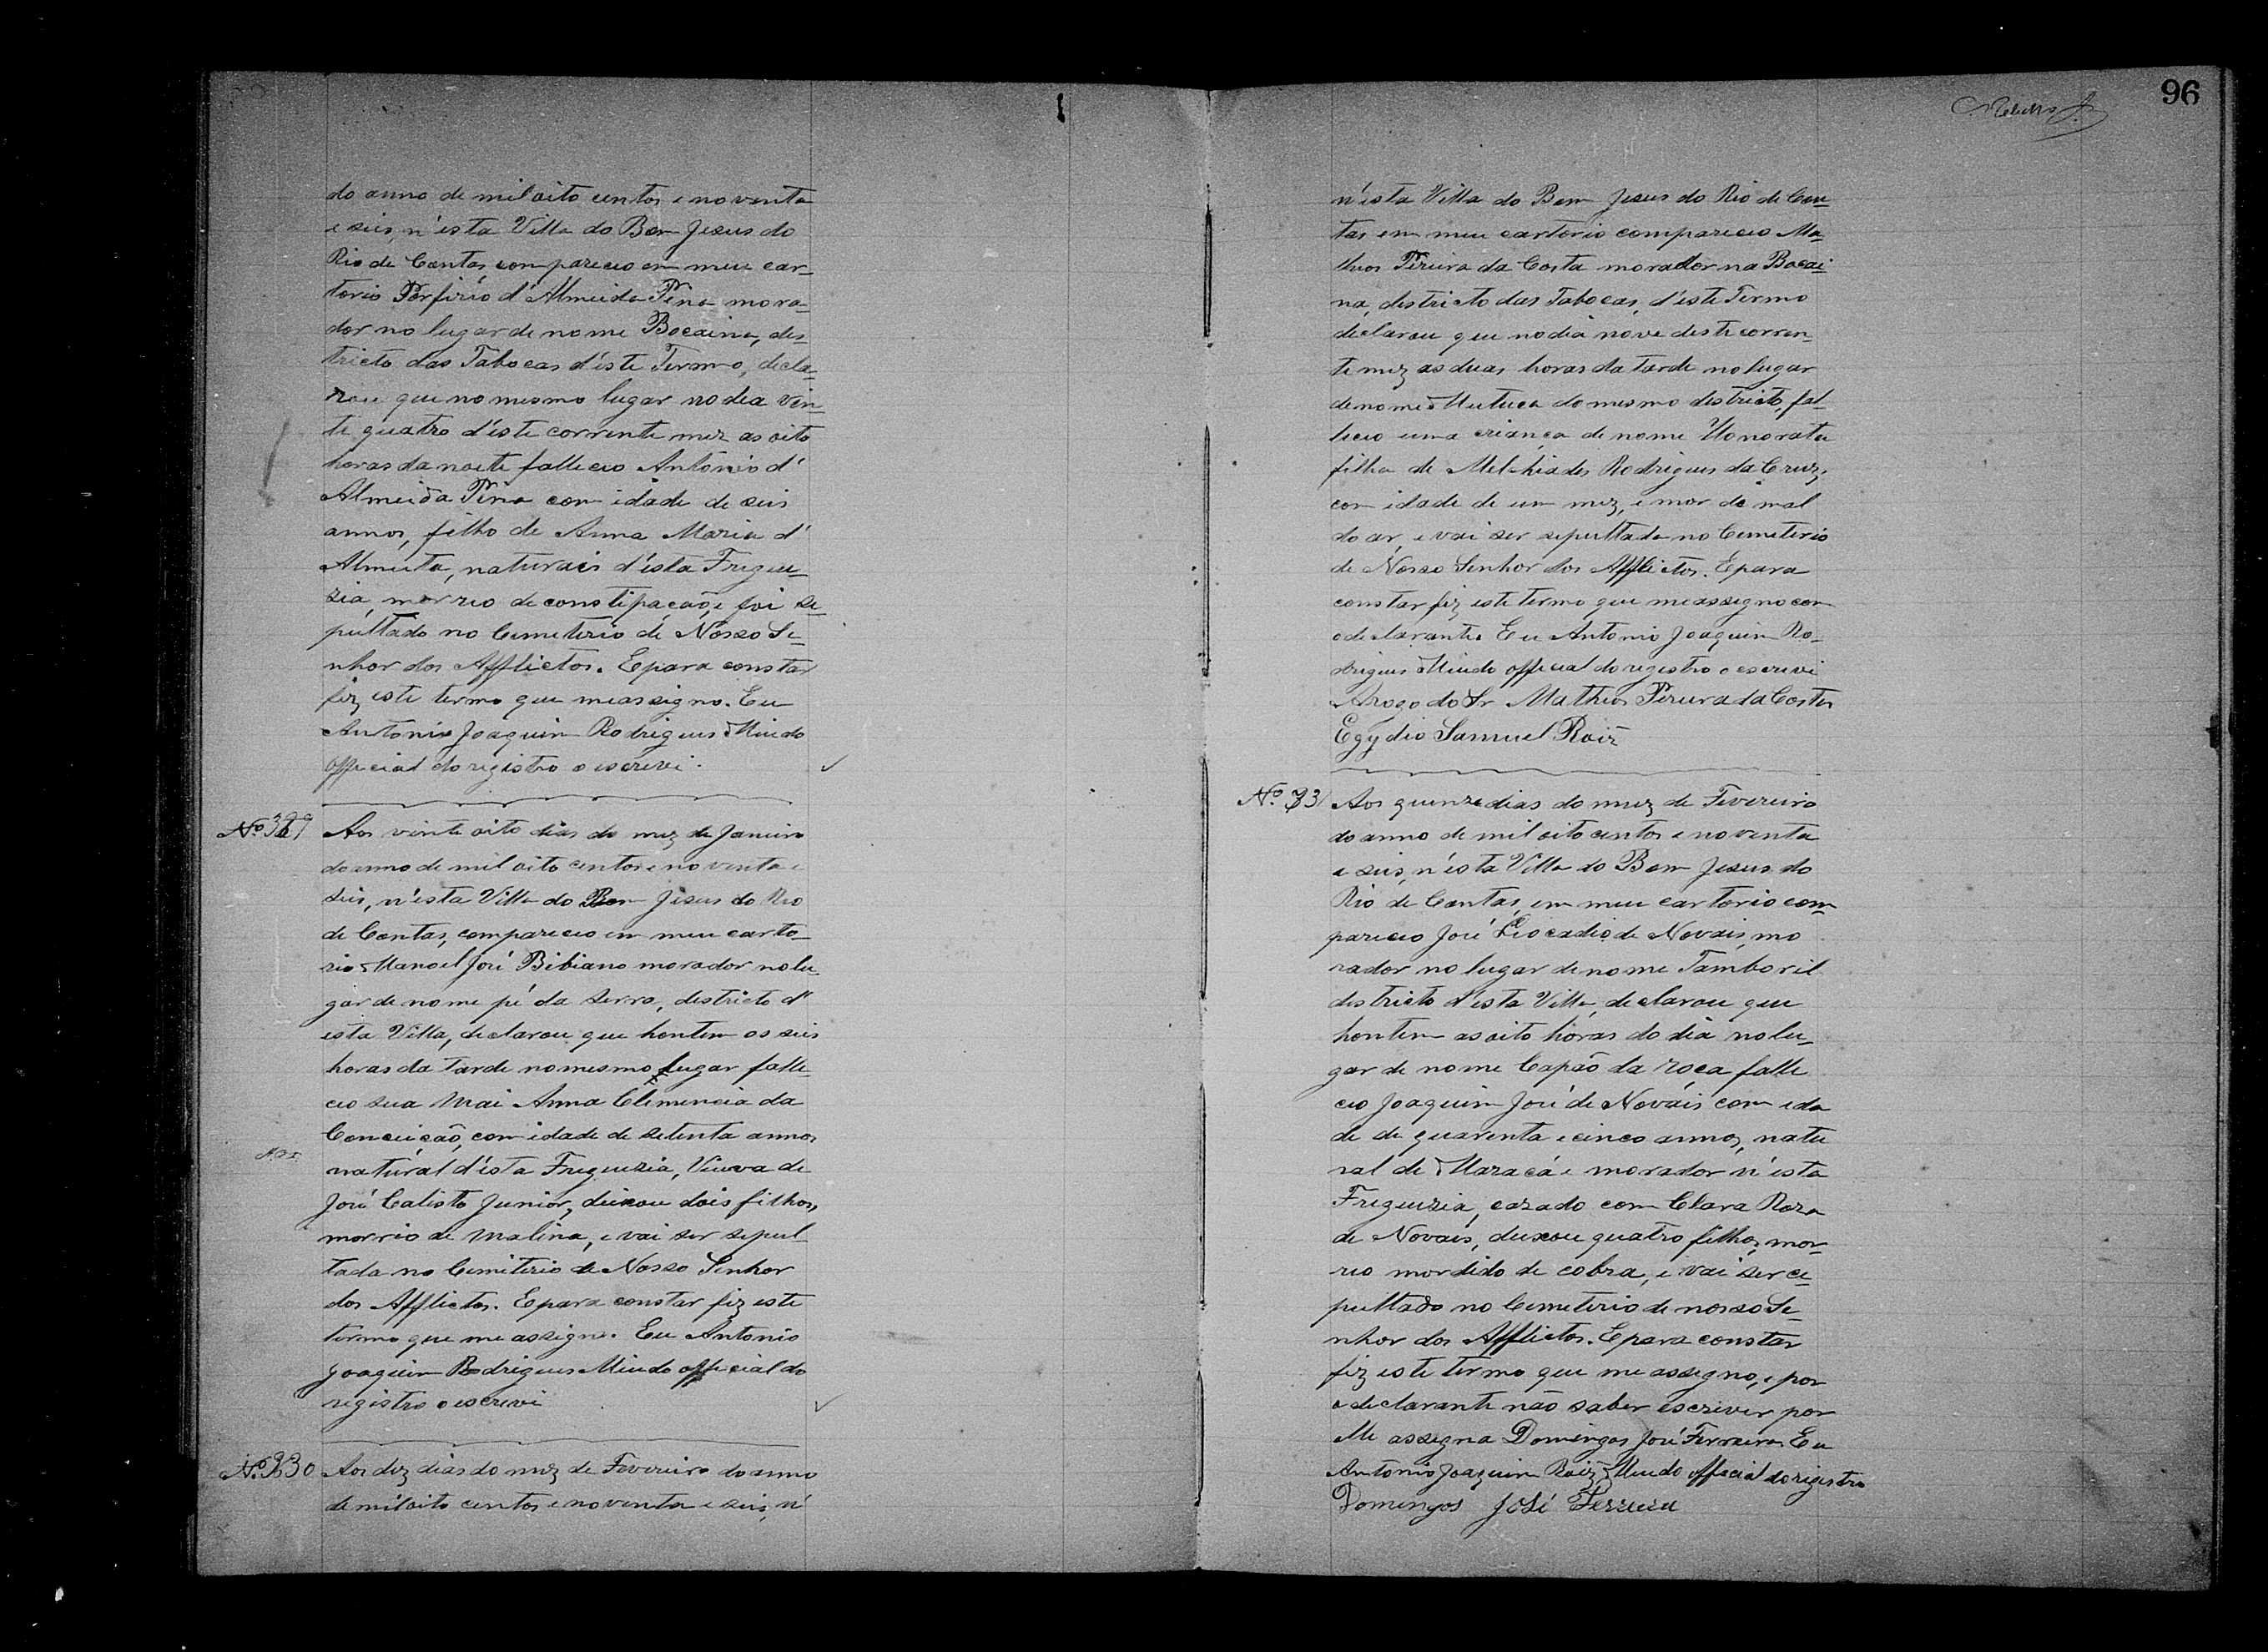 do anno de mil oito centos e noventa
e seis, n'esta Villa do Bom Jesus do
Rio de Contas, compareceo em meu car-
torio Porfirio d'Almeida Pina mora-
dor no lugar de nome Bocaina, des-
tricto das Tabocas d'este Termo, decla-
rou que no mesmo lugar no dia vin-
te quatro d'este corrente mez as oito
horas da noite falleceo Antonio d'
Almeida Pina com idade de seis
annos, filho de Anna Maria d'
Almeida, naturais d'esta Fregue-
sia, morreo de constipação, e foi se-
pultado no Cemeterio de Nosso Se-
nhor dos Afflictos. E para constar
fiz este termo que me assigno. Eu
Antonio Joaquim Rodrigues Miudo
official do registro o escrevi.
Nº 329 Aos vinte oito dias do mez de Janeiro
do anno de mil oito centos e noventa e
seis, n'esta Villa do Bom Jesus do Rio
de Contas, compareceo em meu carto-
rio Manoel José Bibiano morador no lu-
gar de nome pé da serra, destricto d'
esta Villa, declarou que hontem as seis
horas da tarde no mesmo lugar falle-
ceo sua Mai Anna Clemencia da
Conceição, com idade de setenta annos
natural d'esta Freguezia, Viuva de
José Calisto Junior, deixou dois filhos,
morrio de malina, e vai ser sepul-
tada no Cemiterio de Nosso Senhor
dos Afflictos. E para constar fiz este
termo que me assigno. Eu Antonio
Joaquim Rodrigues Miudo official do
registro o escrevi
Nº 330 Aos dez dias do mez de Fevereiro do anno
de mil oito centos e noventa e seis, n'
96
n'esta Villa do Bom Jesus do Rio de Con-
tas em meu cartorio compareceo Ma-
theos Pereira da Costa morador na Bocai-
na, destricto das Tabocas, d'este Termo
declarou que no dia nove deste corren-
te mez as duas horas da tarde no lugar
de nome Mutuca do mesmo destricto, fal-
leceo uma criança de nome Honorata
filha de Melchiades Rodrigues da Cruz,
com idade de um mez, e mor de mal
do ar, e vai ser sepultada no Cemeterio
de Nosso Senhor dos Afflictos. E para
constar fiz este termo que me assigno com
o declarante. Eu Antonio Joaquim Ro-
drigues Miudo official do registro o escrevi
Arogo do Sr Matheos Pereira da Costa
Egydio Samuel Roiz
Nº 331 Aos quinze dias do mez de Fevereiro
do anno de mil oito centos e noventa
e seis, n'esta Villa do Bom Jesus do
Rio de Contas, em meu cartorio com-
pareceo José Leocadio de Novais, mo
rador no lugar de nome Tamboril
destricto d'esta Villa, declarou que
hontem as oito horas do dia no lu-
gar de nome Capão da roça falle
ceo Joaquim José de Novais com ida
de de quarenta e cinco annos, natu
ral de Maracá e morador n'esta
Freguezia, cazado com Clara Roza
de Novais, deixou quatro filhos, mor-
reo mordido de cobra, e vai ser ce-
pultado no Cemeterio de nosso Se-
nhor dos Afflictos. E para constar
fiz este termo que me assigno, e por
o declarante não saber escrever por
elle assigna Domingos José Ferreira Eu
Antonio Joaquim Roiz Miudo official do registro
Domingos José Ferreira